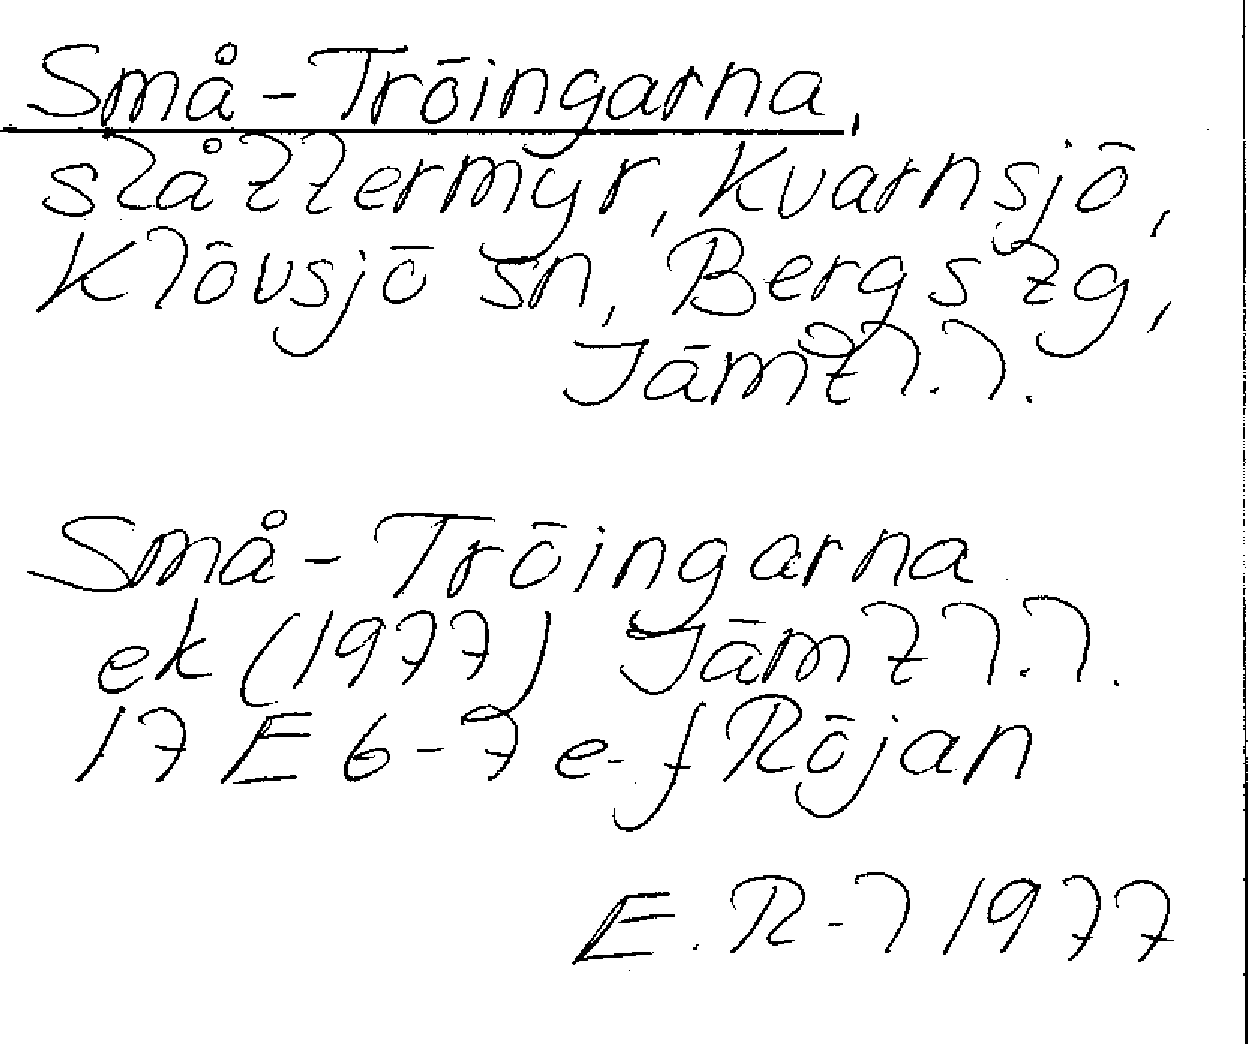 Små-Tröingarna,
slåttermyr, Kvarnsjö,
Klövsjö sn, Bergs tg,
Jämtl.l.
Små-Tröingarna
ek (1977) Jämtl.l.
17 E 6-7 e-f Röjan
E. R-l 1977